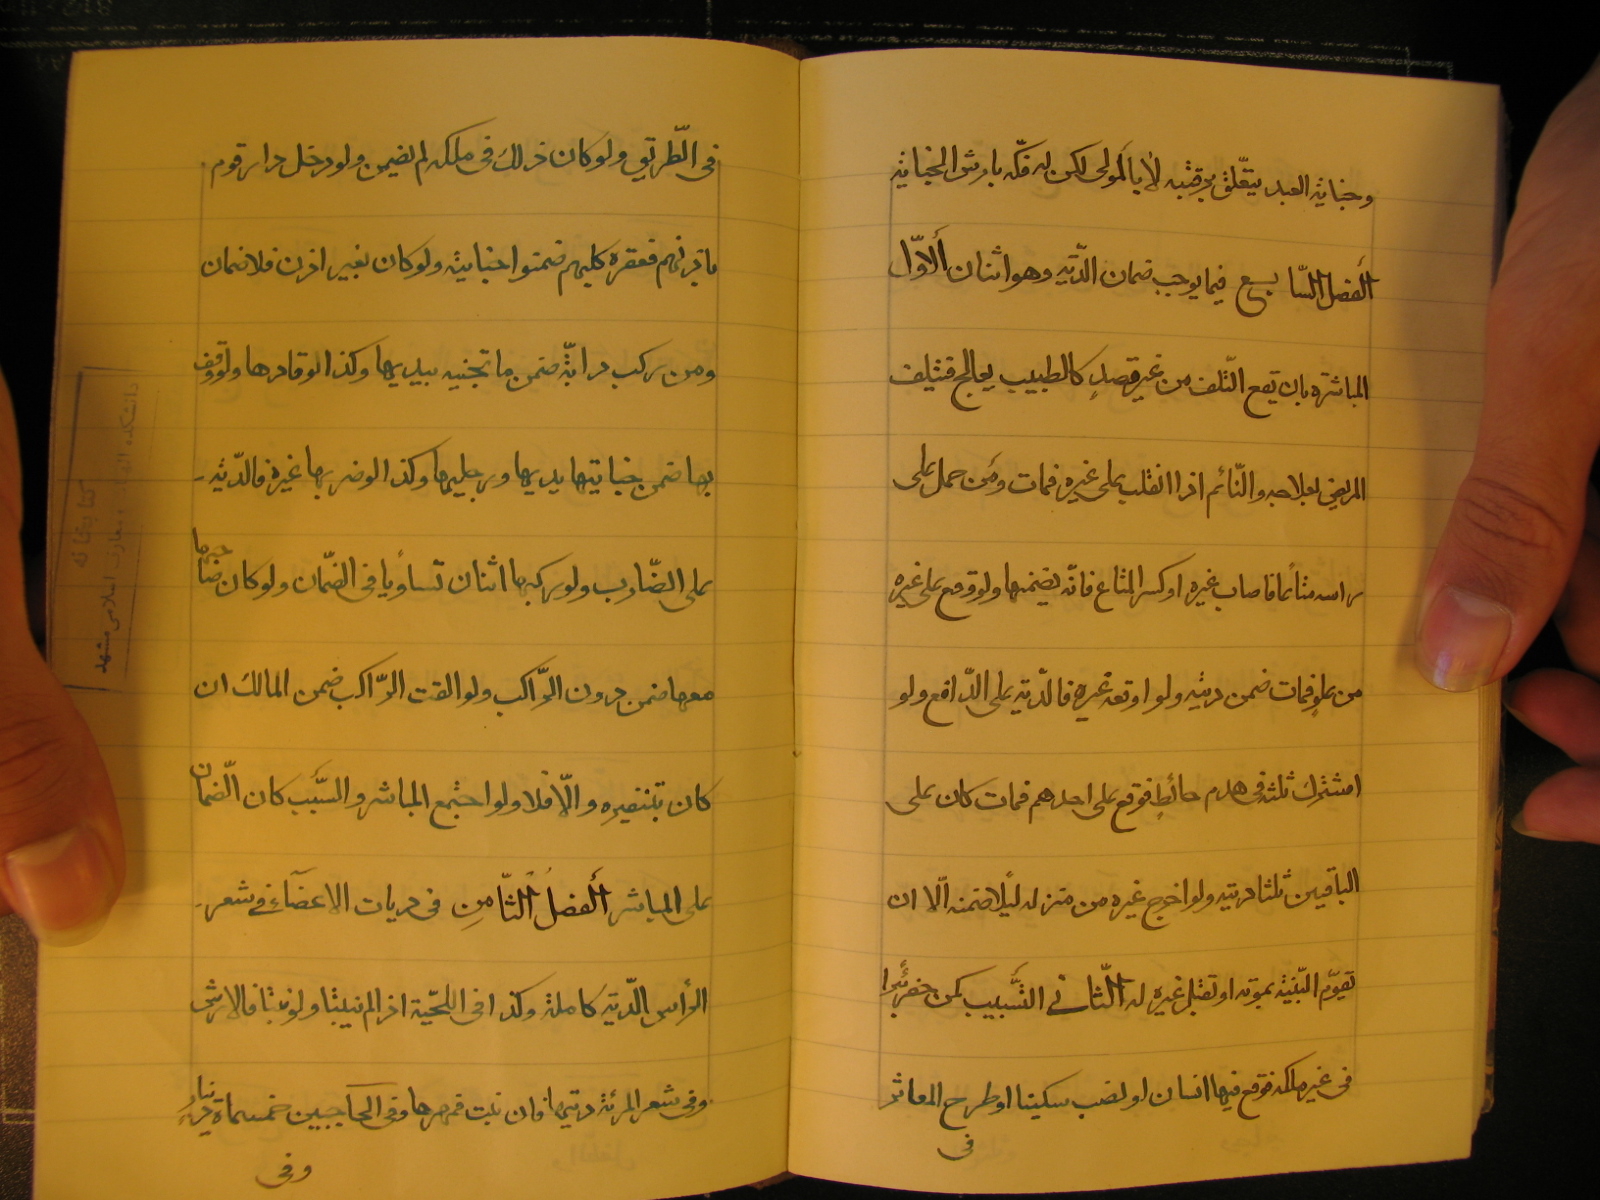 وجناية العبد يتعلّق برقبته لا بالمولى لكن له فكّه بارش الجناية
الفصل السّابع فيما يوجب ضمان الدّية وهو اثنان الاوّل
المباشرة بان يقع التّلف من غير قصدٍ كالطبيب يعالج فيتلف
المريض بعلاجه والنّائم اذا انقلب على غيره فمات ومن حمل على
راسه متاعا فاصاب غيره او كسر المتاع فانّه يضمنها ولو وقع على غيره
من علوٍ فمات ضمن ديته ولو اوقعه غيره فالدّية على الدّافع ولو
اشترك ثلثة فى هدم حائطٍ فوقع على احدهم فمات كان على
الباقيين ثلثا ديته ولو اخرج غيره من منزله ليلًا ضمنه الّا ان
تقوم البّينة بموته او تقتل غيره له الثّانى التّسبيب كمن حفر بئرا
فى غير ملكه فوقع فيها انسان او نصب سكينا او طرح المعاثر
فى
فى الطّريق ولو كان ذلك فى ملكه لم يضمن ولو دخل دار قوم
باذنهم فعقره كلبهم ضمنوا جنايته ولو كان بغير اذن فلا ضمان
ومن ركب دابّة ضمن ما تجنيه بيديها وكذا لو قادها ولو وقف
بها ضمن جنايتها بيديها ورجليها وكذا لو ضربها غيره فالدّية
على الضّارب ولو ركبها اثنان تساويا فى الضّمان ولو كان صاحبها
معها ضمن دون الرّاكب ولو القت الرّاكب ضمن المالك ان
كان بتنفيره والّا فلا ولو اجتمع المباشر والسّبب كان الضّمان
على المباشر الفصل الثّامن فى ديات الاعضاء فى شعر
الرأس الدّية كاملة وكذا فى اللّحية اذا لم ينبتا ولو نبتا فالارش
وفى شعر المرئة ديتها فان نبت فمهرها وفى الحاجبين خمسمأة دينار
وفى
كتابخانه
دانشكده الهيات و معارف اسلامى مشهد